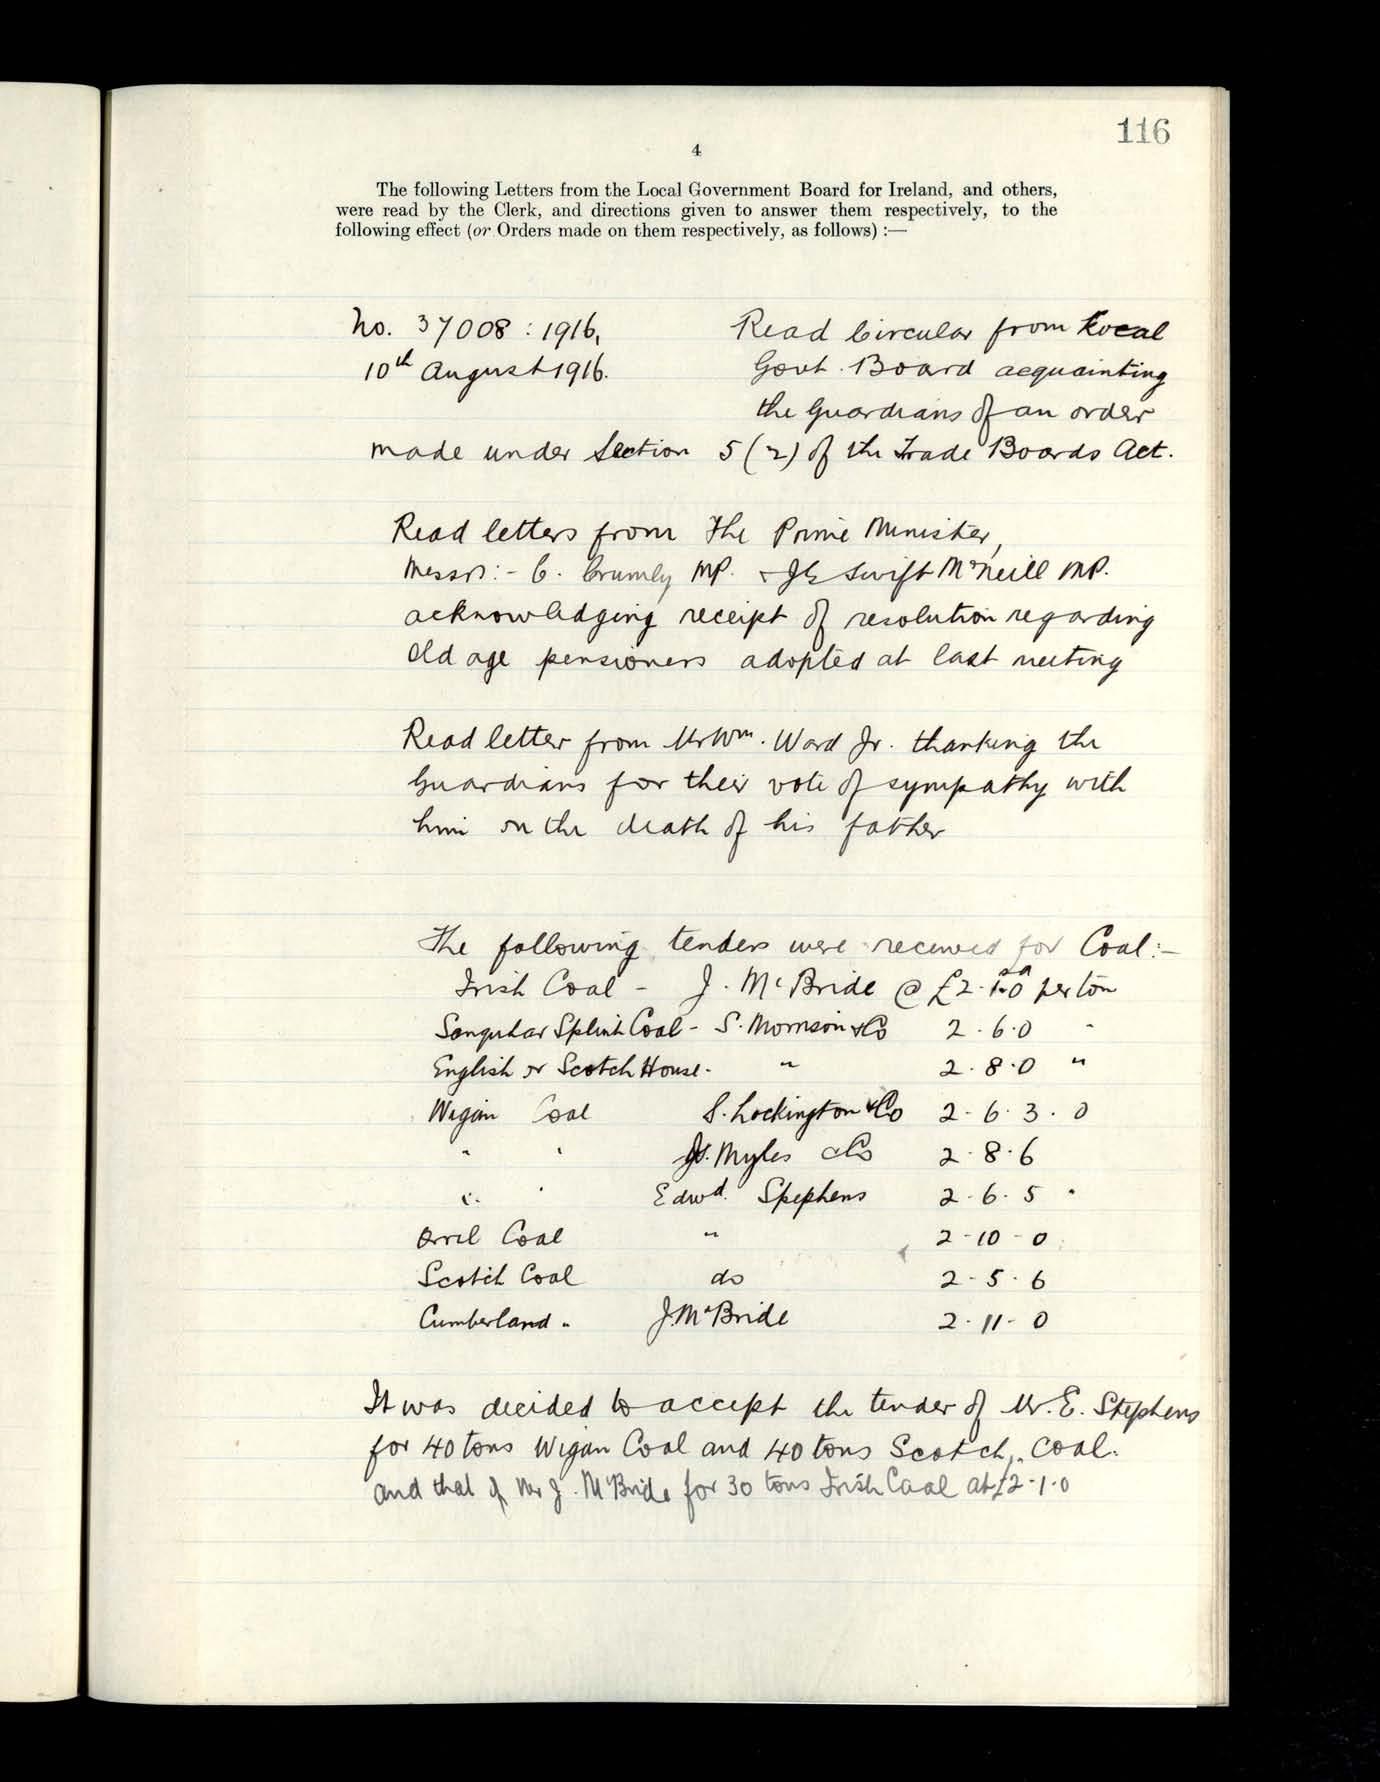 116
4
The following Letters from the Local Government Board for Ireland, and others,
were read by the Clerk, and directions given to answer them respectively, to the
following effect (or Orders made on them respectively, as follows) :—
No. 37008 : 1916, Read Circular from Local
10th August 1916. Govt. Board acquainting
the Guardians of an order
made under Section 5 (2) of the Trade Boards Act.
Read letters from The Prime Minister,
Messrs:- C. Crumly MP. & J G Swift McNeill MP.
acknowledging receipt of resolution regarding
old age pensioners adopted at last meeting
Read letter from Mr Wm. Ward Jr. thanking the
Guardians for their vote of sympathy with
him on the death of his father
The following tenders were received for Coal:-
Irish Coal - J. McBride @ £2.1.0 per ton
Splint Coal - S. Morrison & Co 2.6.0 "
English or Scotch House - " 2.8.0 "
Wigan Coal S. Lockington & Co 2.6.3.0
" " Js. Myles & Co 2.8.6
" " Edwd. Stephens 2.6.5 "
Orrel Coal " 2-10-0
Scotch Coal do 2.5.6
Cumberland " J. McBride 2.11-0
It was decided to accept the tender of Mr. E. Stephens
for 40 tons Wigan Coal and 40 tons Scotch Coal.
and that of Mr J. McBride for 30 tons Irish Coal at £2.1.0